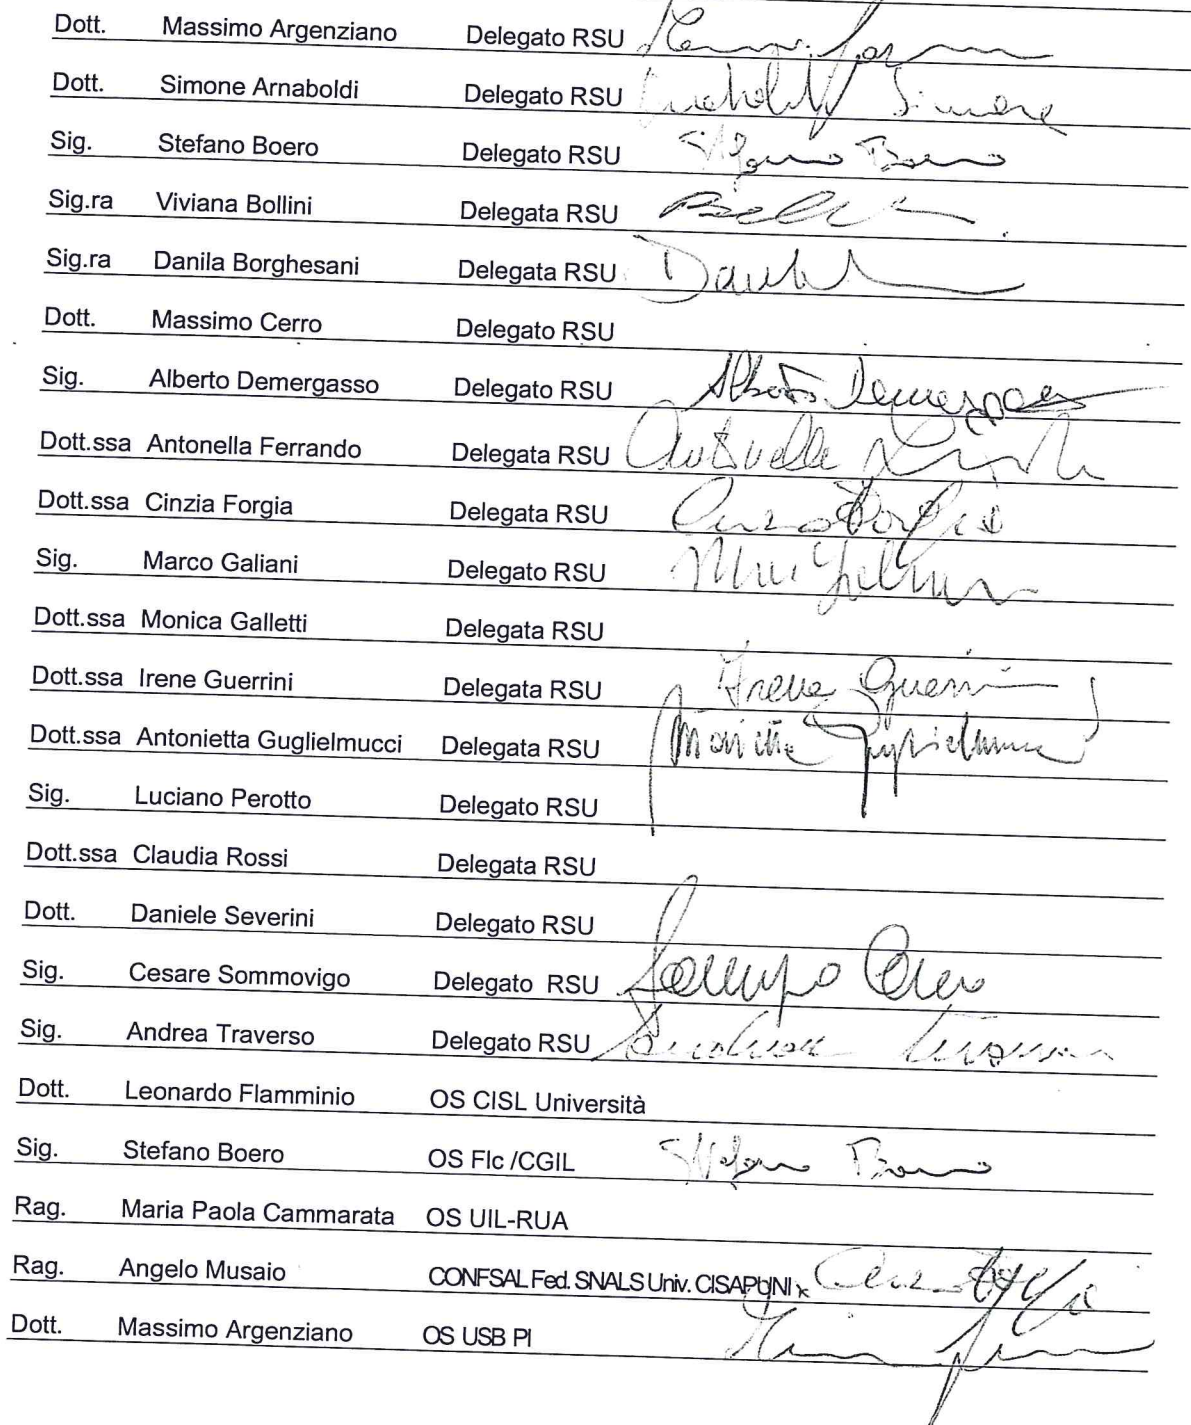 Dott. Massimo Argenziano Delegato RSU
Dott. Simone Arnaboldi Delegato RSU Simone
Sig. Stefano Boero Delegato RSU Stefano Boero
Sig.ra Viviana Bollini Delegata RSU
Sig.ra Danila Borghesani Delegata RSU
Dott. Massimo Cerro Delegato RSU
Sig. Alberto Demergasso Delegato RSU Alberto Demergasso
Dott.ssa Antonella Ferrando Delegata RSU Antonella
Dott.ssa Cinzia Forgia Delegata RSU Cinzia Forgia
Sig. Marco Galiani Delegato RSU
Dott.ssa Monica Galletti Delegata RSU
Dott.ssa Irene Guerrini Delegata RSU Irene Guerrini
Dott.ssa Antonietta Guglielmucci Delegata RSU
Sig. Luciano Perotto Delegato RSU
Dott.ssa Claudia Rossi Delegata RSU
Dott. Daniele Severini Delegato RSU
Sig. Cesare Sommovigo Delegato RSU
Sig. Andrea Traverso Delegato RSU
Dott. Leonardo Flamminio OS CISL Università
Sig. Stefano Boero OS Flc /CGIL Stefano Boero
Rag. Maria Paola Cammarata OS UIL-RUA
Rag. Angelo Musaio CONFSAL Fed. SNALS Univ. CISAPUNI x
Dott. Massimo Argenziano OS USB PI